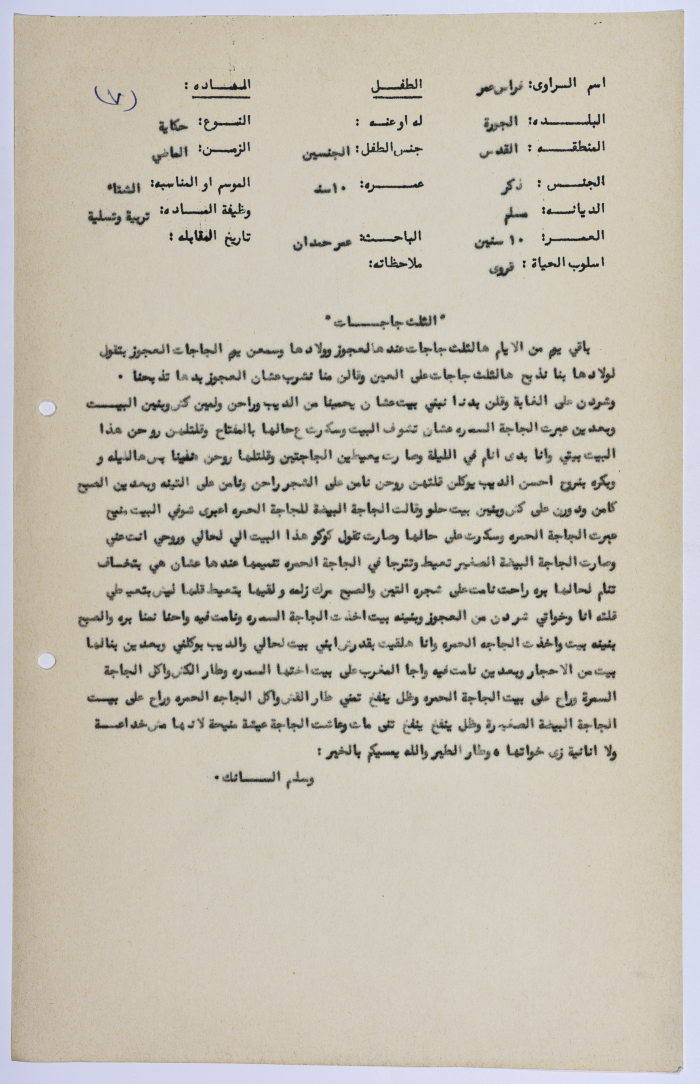 (٧)
اسم الراوى: فراس عمر الطفل الماده :
البلده: الجورة له او عنه : النوع: حكاية
المنطقه : القدس جنس الطفل: الجنسين الزمن: الماضي
الجنس : ذكر عمره: ١٠سنه الموسم او المناسبه: الشتاء
الديانه: مسلم وظيفة الماده: تربية وتسلية
العمر: ١٠ سنين الباحث: عمر حمدان تاريخ المقابله :
اسلوب الحياة : قروى ملاحظاته:
" الثلث جاجات "
باقي يوم من الايام هالثلث جاجات عند هالعجوز وولادها وسمعن يوم الجاجات العجوز بتقول
لولادها بنا نذبح هالثلث جاجات على العين وقالن منا نشرب عشان العجوز بدها تذبحنا ٠
وشردن على الغابة وقلن بدنا نبني بيت عشان يحمينا من الديب وراحن ولمين كش وبنين البيت
وبعدين عبرت الجاجة السمره عشان تشوف البيت وسكرت ع حالها بالمفتاح وقلتلهن روحن هذا
البيت بيتي وانا بدى انام في الليلة وصارت يعيطين الجاجتين وقلتلها روحن هفينا بس هالليله و
وبكره بنروح احسن الديب يوكلن قلتهن روحن نامن على الشجر راحن ونامن على التينه وبعدين الصبح
كامن ودورن على كش وبنين بيت حلو وقالت الجاجة البيضة للجاجة الحمره اعبرى شوفي البيت منيح
عبرت الجاجة الحمره وسكرت على حالها وصارت تقول كوكو هذا البيت الي لحالي وروحي انت عني
وصارت الجاجة البيضة الصغير تعيط وتترجا في الجاجة الحمره تنيمها عندها عشان هي بتخاف
تنام لحالها بره راحت نامت على شجره التين والصبح مرك زلمه ولقيها بتعيط قلها ليش بتعيطي
قلته انا وخواتي شردن من العجوز وبنينه بيت اخذت الجاجة السمره ونامت فيه واحنا نمنا بره والصبح
بنينه بيت واخذت الجاجه الحمره وانا هلقيت بقدرش ابني بيت لحالي والديب بوكلني وبعدين بنالها
بيت من الاحجار وبعدين نامت فيه واجا المغرب على بيت اختها السمره وطار الكش واكل الجاجة
السمرة وراح على بيت الجاجة الحمره وظل ينفخ تمني طار القش واكل الجاجه الحمره وراح على بيت
الجاجة البيضة الصغيرة وظل ينفخ ينفخ تنى مات وعاشت الجاجة عيشة منيحة لانها مش خداعة
ولا انانية زى خواتها ٥ وطار الطير والله يمسيكم بالخير :
وسلم السانك٠